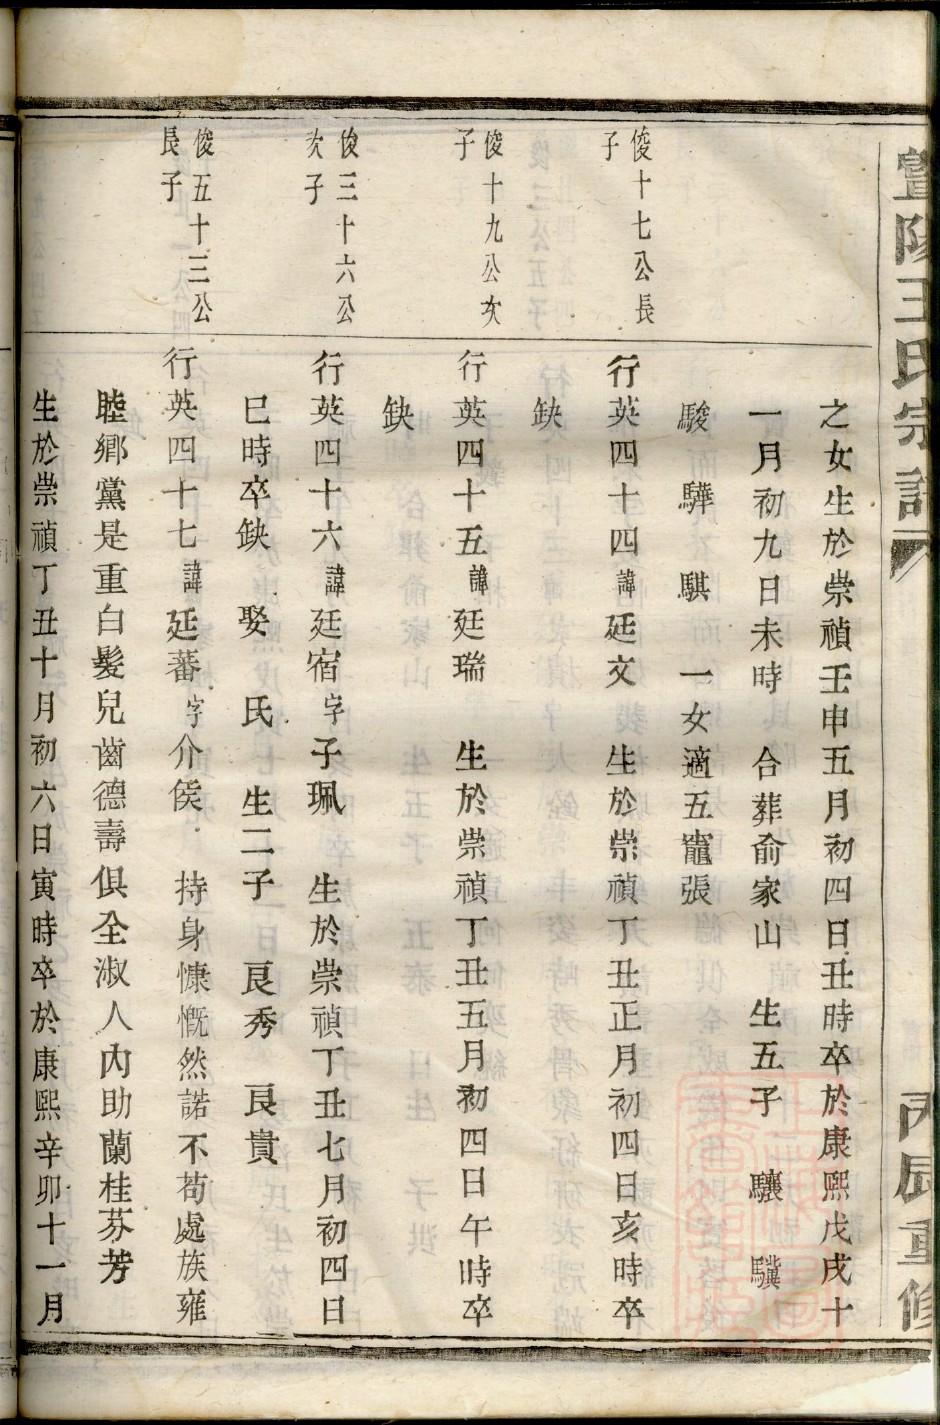 暨陽王氏宗譜
丙辰重修
之女生於崇禎壬申五月初四日丑時卒於康熙戊戌十
一月初九日未時 合葬俞家山 生五子 驤 驥
駿 驊 騏 一女適五竈張
俊十七公長
子
行英四十四諱廷文 生於崇禎丁丑正月初四日亥時卒
缺
俊十九公次
子
行英四十五諱廷瑞 生於崇禎丁丑五月初四日午時卒
缺
俊三十六公
次子
行英四十六諱廷宿字子珮 生於崇禎丁丑七月初四日
巳時卒缺 娶 氏 生二子 良秀 良貴
俊五十三公
長子
行英四十七諱廷蕃字介侯 持身慷慨然諾不苟處族雍
睦鄉黨是重白髮兒齒德壽俱全淑人內助蘭桂芬芳
生於崇禎丁丑十月初六日寅時卒於康熙辛卯十一月